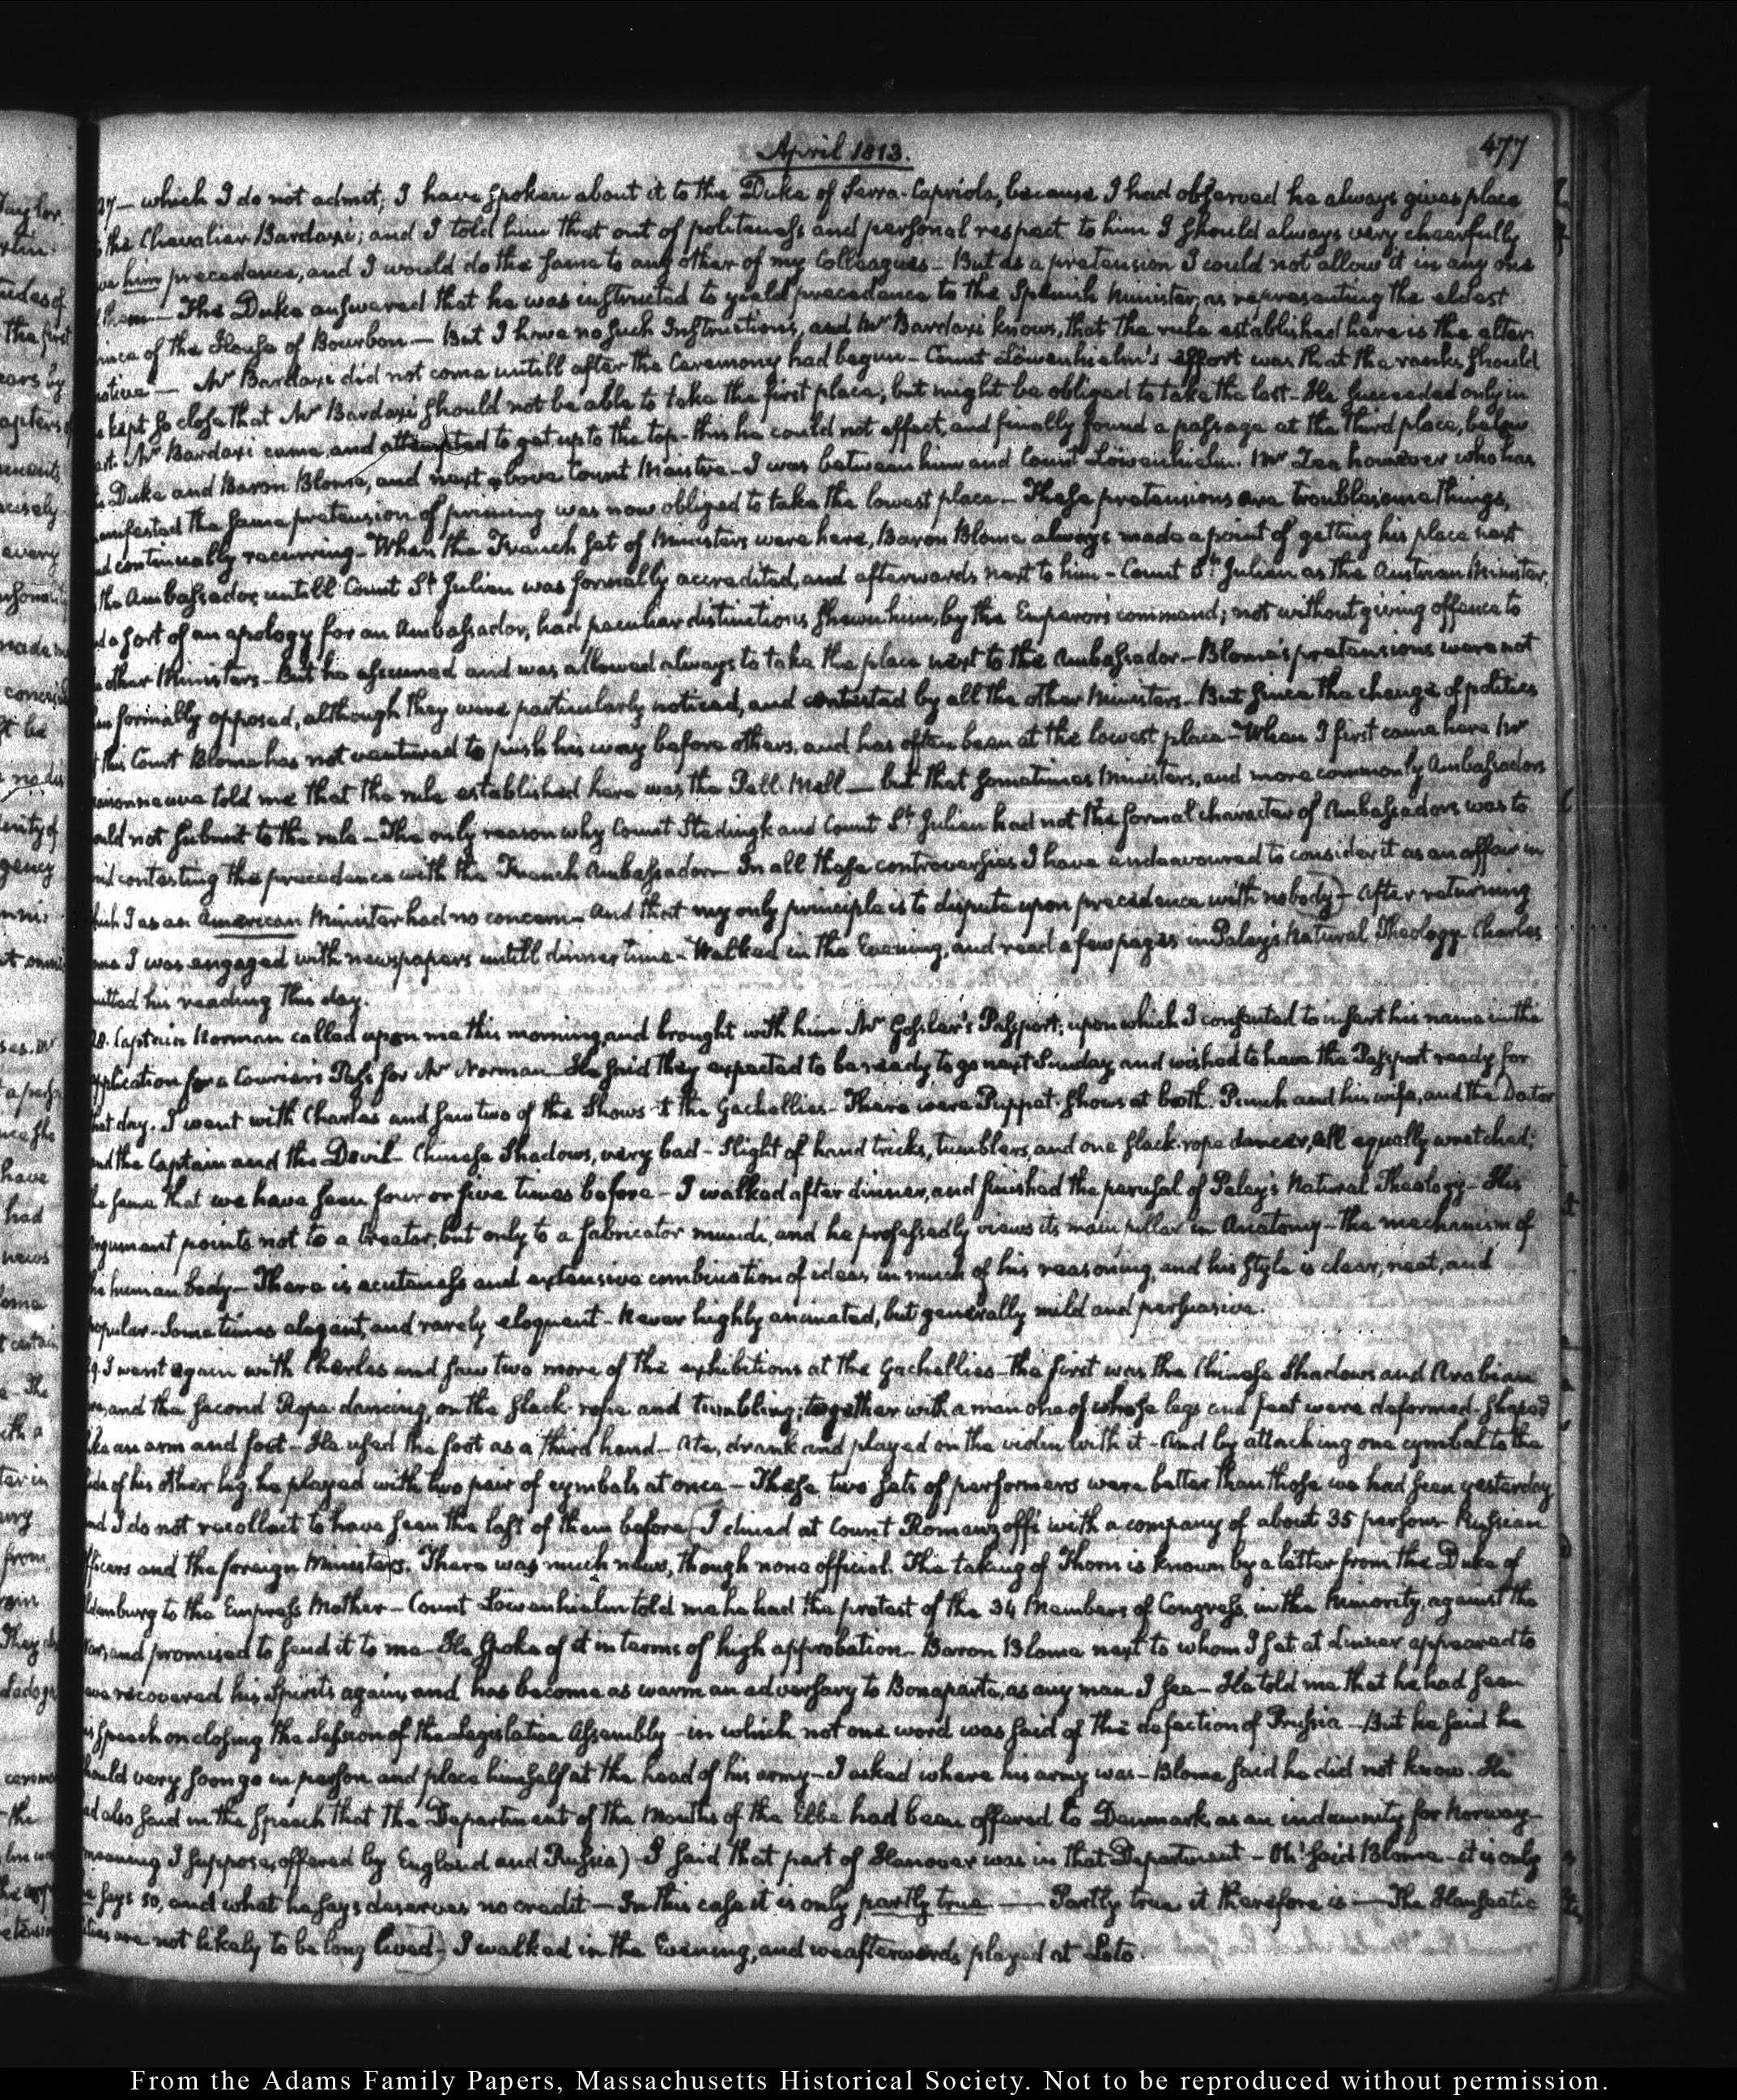 April 1813.
477
27— which I do not admit; I have spoken about it to the Duke of Serra-Capriola, because I had observed he always gives place
the Chevalier Bardaxi; and I told him that out of politeness and personal respect to him I should always very cheerfully
him precedence, and I would do the same to any other of my Colleagues— But as a pretension I could not allow it in any one
them— The Duke answered that he was instructed to yield precedence to the Spanish Minister, as representing the eldest
of the House of Bourbon— But I have no such Instructions, and Mr Bardaxi knows, that the rule established here is the alter-
native— Mr Bardaxi did not come untill after the Ceremony had begun— Count Löwenhielm's effort was that the ranks should
kept so close that Mr Bardaxi should not be able to take the first place; but might be obliged to take the last— He succeeded only in
part. Mr Bardaxi came, and attempted to get up to the top— this he could not effect, and finally found a passage at the third place, below
Duke and Baron Blome, and next above Count Maistre— I was between him and Count Löwenhielm. Mr Zea however who has
manifested the same pretension of priming was now obliged to take the lowest place— These pretensions are troublesome things,
and continually recurring— When the French set of Ministers were here, Baron Blome always made a point of getting his place next
the Ambassador, untill Count St Julien was formally accredited, and afterwards next to him— Count St Julien as the Austrian Minister,
a sort of an apology for an Ambassador, had peculiar distinctions shewn him, by the Emperor's command; not without giving offence to
other Ministers— But he assumed and was allowed always to take the place next to the Ambassador— Blome's pretensions were not
formally opposed, although they were particularly noticed, and contested by all the other Ministers— But since the change of politics
this Court Blome has not ventured to push his way before others, and has often been at the lowest place— When I first came here Mr
Maisonneuve told me that the rule established here was the Pell-Mell— but that sometimes Ministers, and more commonly Ambassadors
would not submit to the rule— The only reason why Count Stedingk and Count St Julien had not the formal character of Ambassadors was to
contesting the precedence with the French Ambassador— In all these controversies I have endeavoured to consider it as an affair in
which I as an American Minister had no concern— And that my only principle is to dispute upon precedence with nobody)— After returning
I was engaged with newspapers untill dinner time— Walked in the Evening, and read a few pages in Paley's Natural Theology— Charles
omitted his reading this day.
28. Captain Norman called upon me this morning and brought with him Mr Gossler's Passport; upon which I consented to insert his name in the
application for a Courier's Pass for Mr Norman— He said they expected to be ready to go next Sunday, and wished to have the Passport ready for
that day. I went with Charles and saw two of the Shows at the Gachellies— There were Puppet-shows at both. Punch and his wife, and the Doctor
and the Captain and the Devil— Chinese Shadows, very bad— Slight of hand tricks, tumblers, and one slack-rope dancer, all equally wretched;
the same that we have seen four or five times before— I walked after dinner, and finished the perusal of Paley's Natural Theology— His
argument points not to a Creator, but only to a fabricator mundi, and he professedly views its main pillar in Anatomy— the mechanism of
the human body— There is acuteness and extensive combination of ideas, in much of his reasoning, and his style is clear, neat, and
popular— Sometimes elegant, and rarely eloquent— Never highly animated, but generally mild and persuasive.
I went again with Charles and saw two more of the exhibitions at the Gachellies— the first was the Chinese Shadows and Arabian
and the second Rope-dancing, on the slack-rope and tumbling; together with a man one of whose legs and feet were deformed— shaped
like an arm and foot— He used the foot as a third hand— ate, drank and played on the violin with it— And by attaching one cymbal to the
side of his other leg, he played with two pair of cymbals at once— These two sets of performers were better than those we had seen yesterday
and I do not recollect to have seen the last of them before (I dined at Count Romanzoff's with a company of about 35 persons— Russian
Officers and the foreign Ministers. There was much news, though none official. The taking of Thorn is known by a letter from the Duke of
Oldenburg to the Empress Mother— Count Löwenhielm told me he had the protest of the 34 Members of Congress, in the Minority, against the
War, and promised to send it to me— He spoke of it in terms of high approbation— Baron Blome next to whom I sat at dinner appeared to
have recovered his Spirits again, and has become as warm an adversary to Bonaparte, as any man I see— He told me that he had seen
his speech on closing the Session of the Legislative Assembly— in which not one word was said of the defection of Prussia— But he said he
should very soon go in person and place himself at the head of his army— I asked where his army was— Blome said he did not know. He
had also said in the speech that the Department of the Mouths of the Elbe had been offered to Denmark, as an indemnity for Norway—
(meaning I suppose, offered by England and Russia)— I said that part of Hanover was in that Department— Oh! said Blome— it is only
he says so, and what he says deserves no credit— In this case it is only partly true— Partly true it therefore is— The Hanseatic
Cities are not likely to be long lived)— I walked in the Evening, and we afterwards played at Loto.
From the Adams Family Papers, Massachusetts Historical Society. Not to be reproduced without permission.